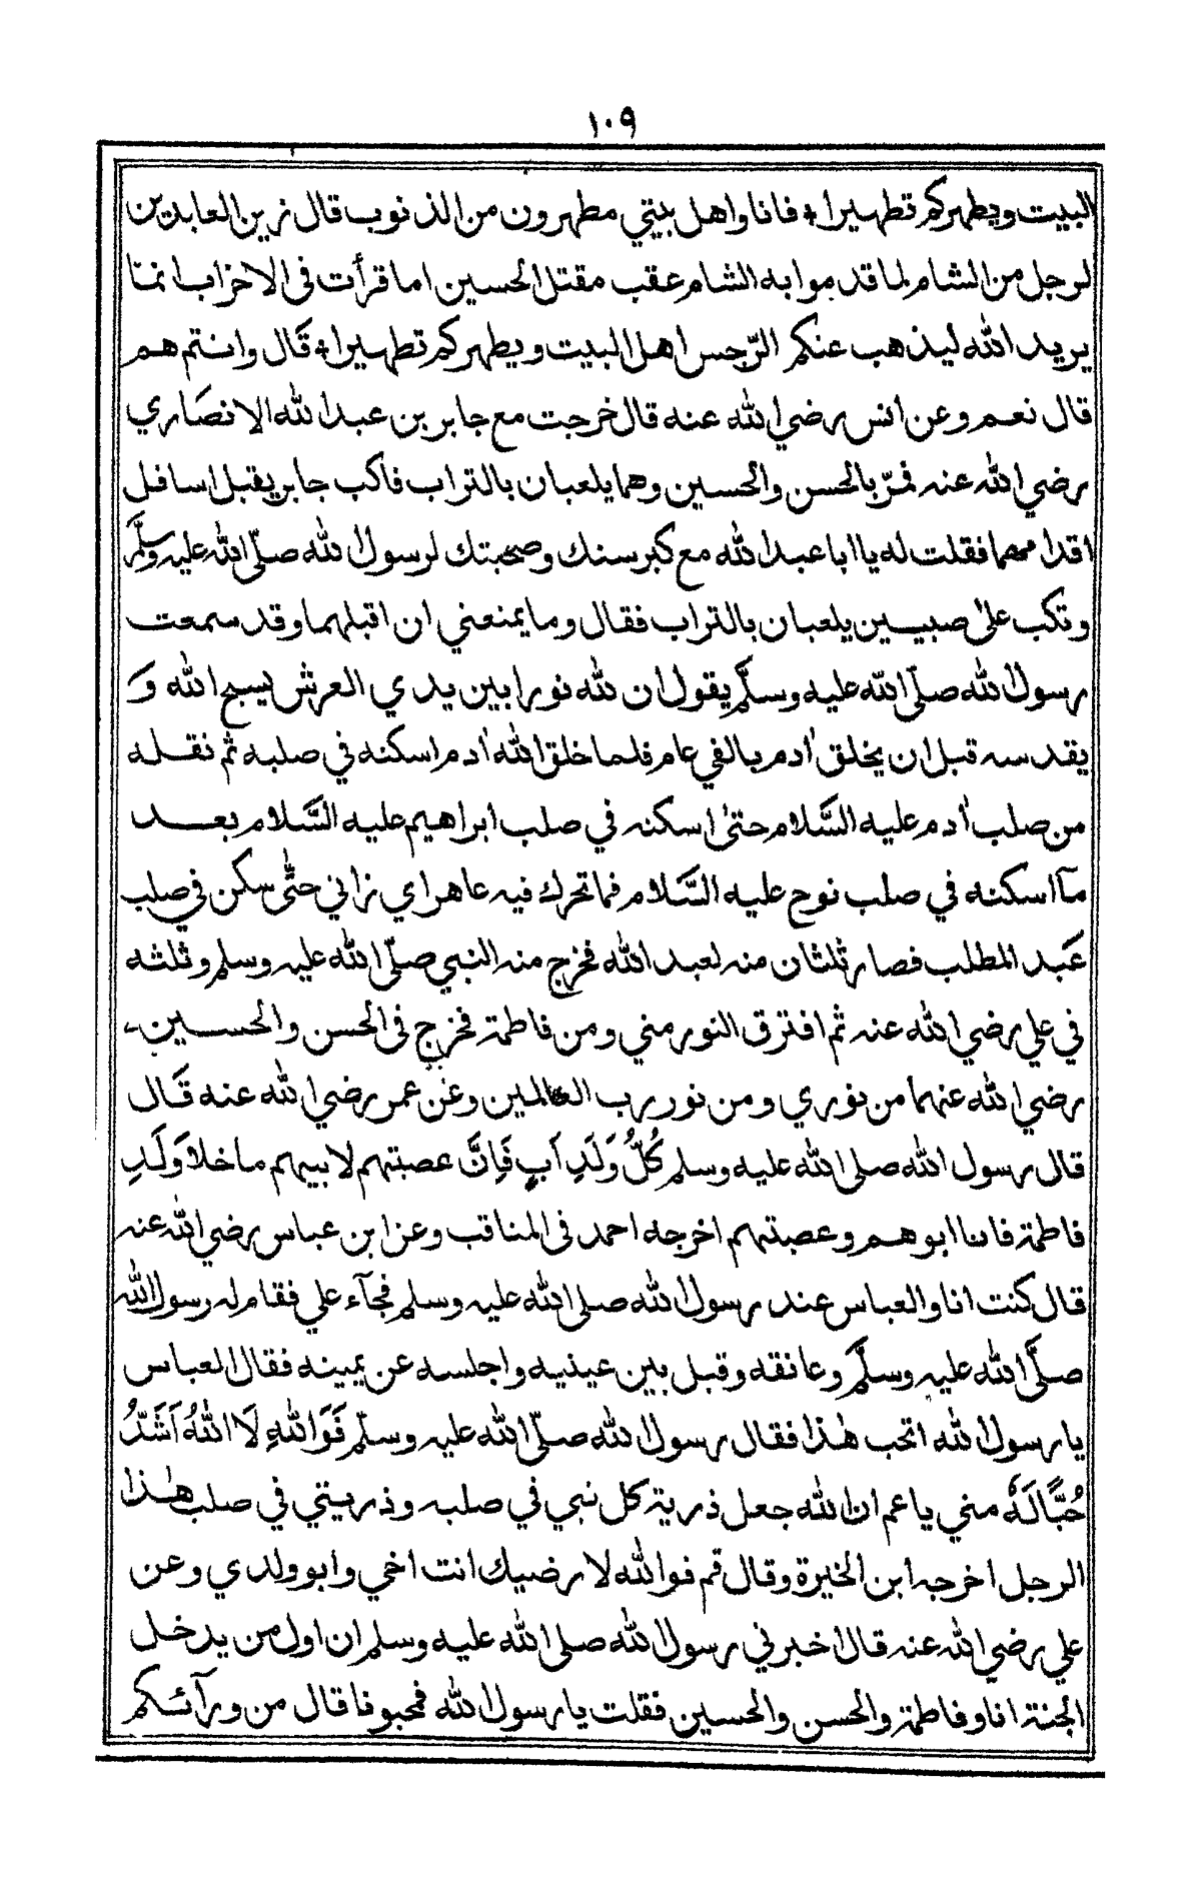 ١٠٩
البيت ويطهركم تطهيرا ۴ فانا واهل بيتي مطهرون من الذنوب قال زين العابدين
لرجل من الشام لما قدموا به الشام عقب مقتل الحسين اما قرأت فى الاخزاب انمّا
يريد الله ليذهب عنكم الرّجس اهل البيت ويطهركم تطهيرا ۴ قَال وانتم هم
قال نعم وعن انس رضي الله عنه قال خرجت مع جابر بن عبد الله الانصَاري
رضي الله عنه فمرّ بالحسن والحسين وهما يلعبان بالتراب فاكب جابر يقبل اسافل
اقدامهما فقلت له يا ابا عبد الله مع كبر سنك وصحبتك لرسول الله صلّى الله عليه وسلَّم
وتكب علىٰ صبيين يلعبان بالتراب فقال وما يمنعني ان اقبلهما وقد سمعت
رسول الله صلّى الله عليه وسلَّم يقول ان لله نورا بين يدي العرش يسبح الله وَ
يقدسه قبل ان يخلق اٰدم بالفي عام فلما خلق الله اٰدم اسكنه في صلبه ثم نقله
من صلب اٰدم عليه السَّلام حتىٰ اسكنه في صلب ابراهيم عليه السَّلام بعد
مآ اسكنه في صلب نوح عليه السَّلام فما تحرك فيه عاهر اي زاني حتّٰى سكن في صلب
عَبد المطلب فصار ثلثان منه لعبد الله فخرج منه النبي صلّى الله عليه وسلم وثلثه
في علي رضي الله عنه ثم افترق النور مني ومن فاطمة فخرج فى الحسن والحسين
رضي الله عنهما من نوري ومن نور رب العالمين وعن عمر رضي الله عنه قَال
قال رسول الله صلى الله عليه وسلم كُلُّ وَلَدِ اَبٍ فَاِنَّ عصبتهم لابيهم ما خلا وَلَدِ
فاطمة فانا ابوهم وعصبتهم اخرجه احمد فى المناقب وعن ابن عباس رضي الله عنه
قال كنت انا والعباس عند رسول الله صلى الله عليه وسلم فجآء علي فقام له رسول الله
صلَّى الله عليه وسلَّم وعانقه وقبل بين عينيه واجلسه عن يمينه فقال العباس
يا رسول الله اتحب هٰذا فقال رسول الله صلّى الله عليه وسلّم فَوَاللهِ لَا اللهُ اَشَدُّ
حُبًّا لَهٗ مني يا عم ان الله جعل ذرية كل نبي في صلبه وذريتي في صلب هٰذا
الرجل اخرجه ابن الخيرة وقال قم فوالله لارضيك انت اخي وابو ولدي وعن
علي رضي الله عنه قال اخبرني رسول الله صلى الله عليه وسلم ان اول من يدخل
الجنة انا وفاطمة والحسن والحسين فقلت يا رسول الله فمحبونا قال من ورآئكم